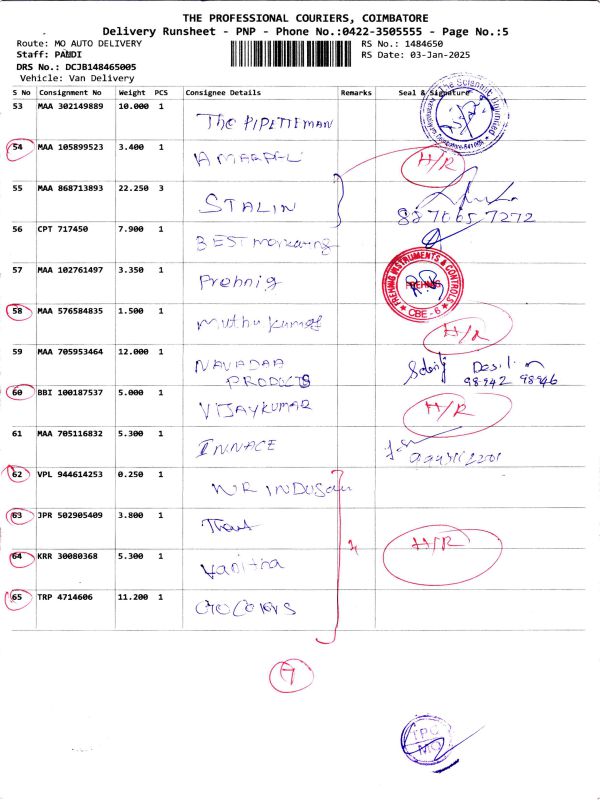 THE PROFESSIONAL COURIERS, COIMBATORE
Delivery Runsheet - PNP - Phone No.:0422-3505555 - Page No.:5
Route: MO AUTO DELIVERY RS No.: 1484650
Staff: PANDI RS Date: 03-Jan-2025
DRS No.: DCJB148465005
Vehicle: Van Delivery
S No Consignment No Weight PCS Consignee Details Remarks Seal & Signature
53 MAA 302149889 10.000 1 The PIPETTEMAN
54 MAA 105899523 3.400 1 H/R
55 MAA 868713893 22.250 3 STALIN
887065 7272
56 CPT 717450 7.900 1 BEST
57 MAA 102761497 3.350 1 Prehnig
PREHNIG INSTRUMENTS & CONTROLS
PREHNIG
CBE - 6
58 MAA 576584835 1.500 1 Muthu Kumar H/R
59 MAA 705953464 12.000 1 NAVADAA
PRODUCTS
98942 98946
60 BBI 100187537 5.000 1 VIJAYKUMAR H/R
61 MAA 705116832 5.300 1 INNACE
62 VPL 944614253 0.250 1
63 JPR 502905409 3.800 1 H/R
64 KRR 30080368 5.300 1 Vanitha
65 TRP 4714606 11.200 1
7
TPC
MO